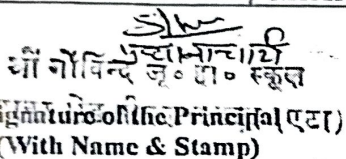 प्रधानाचार्य
श्री गोविन्द जू० हा० स्कूल
Signature of the Principal (एटा)
(With Name & Stamp)